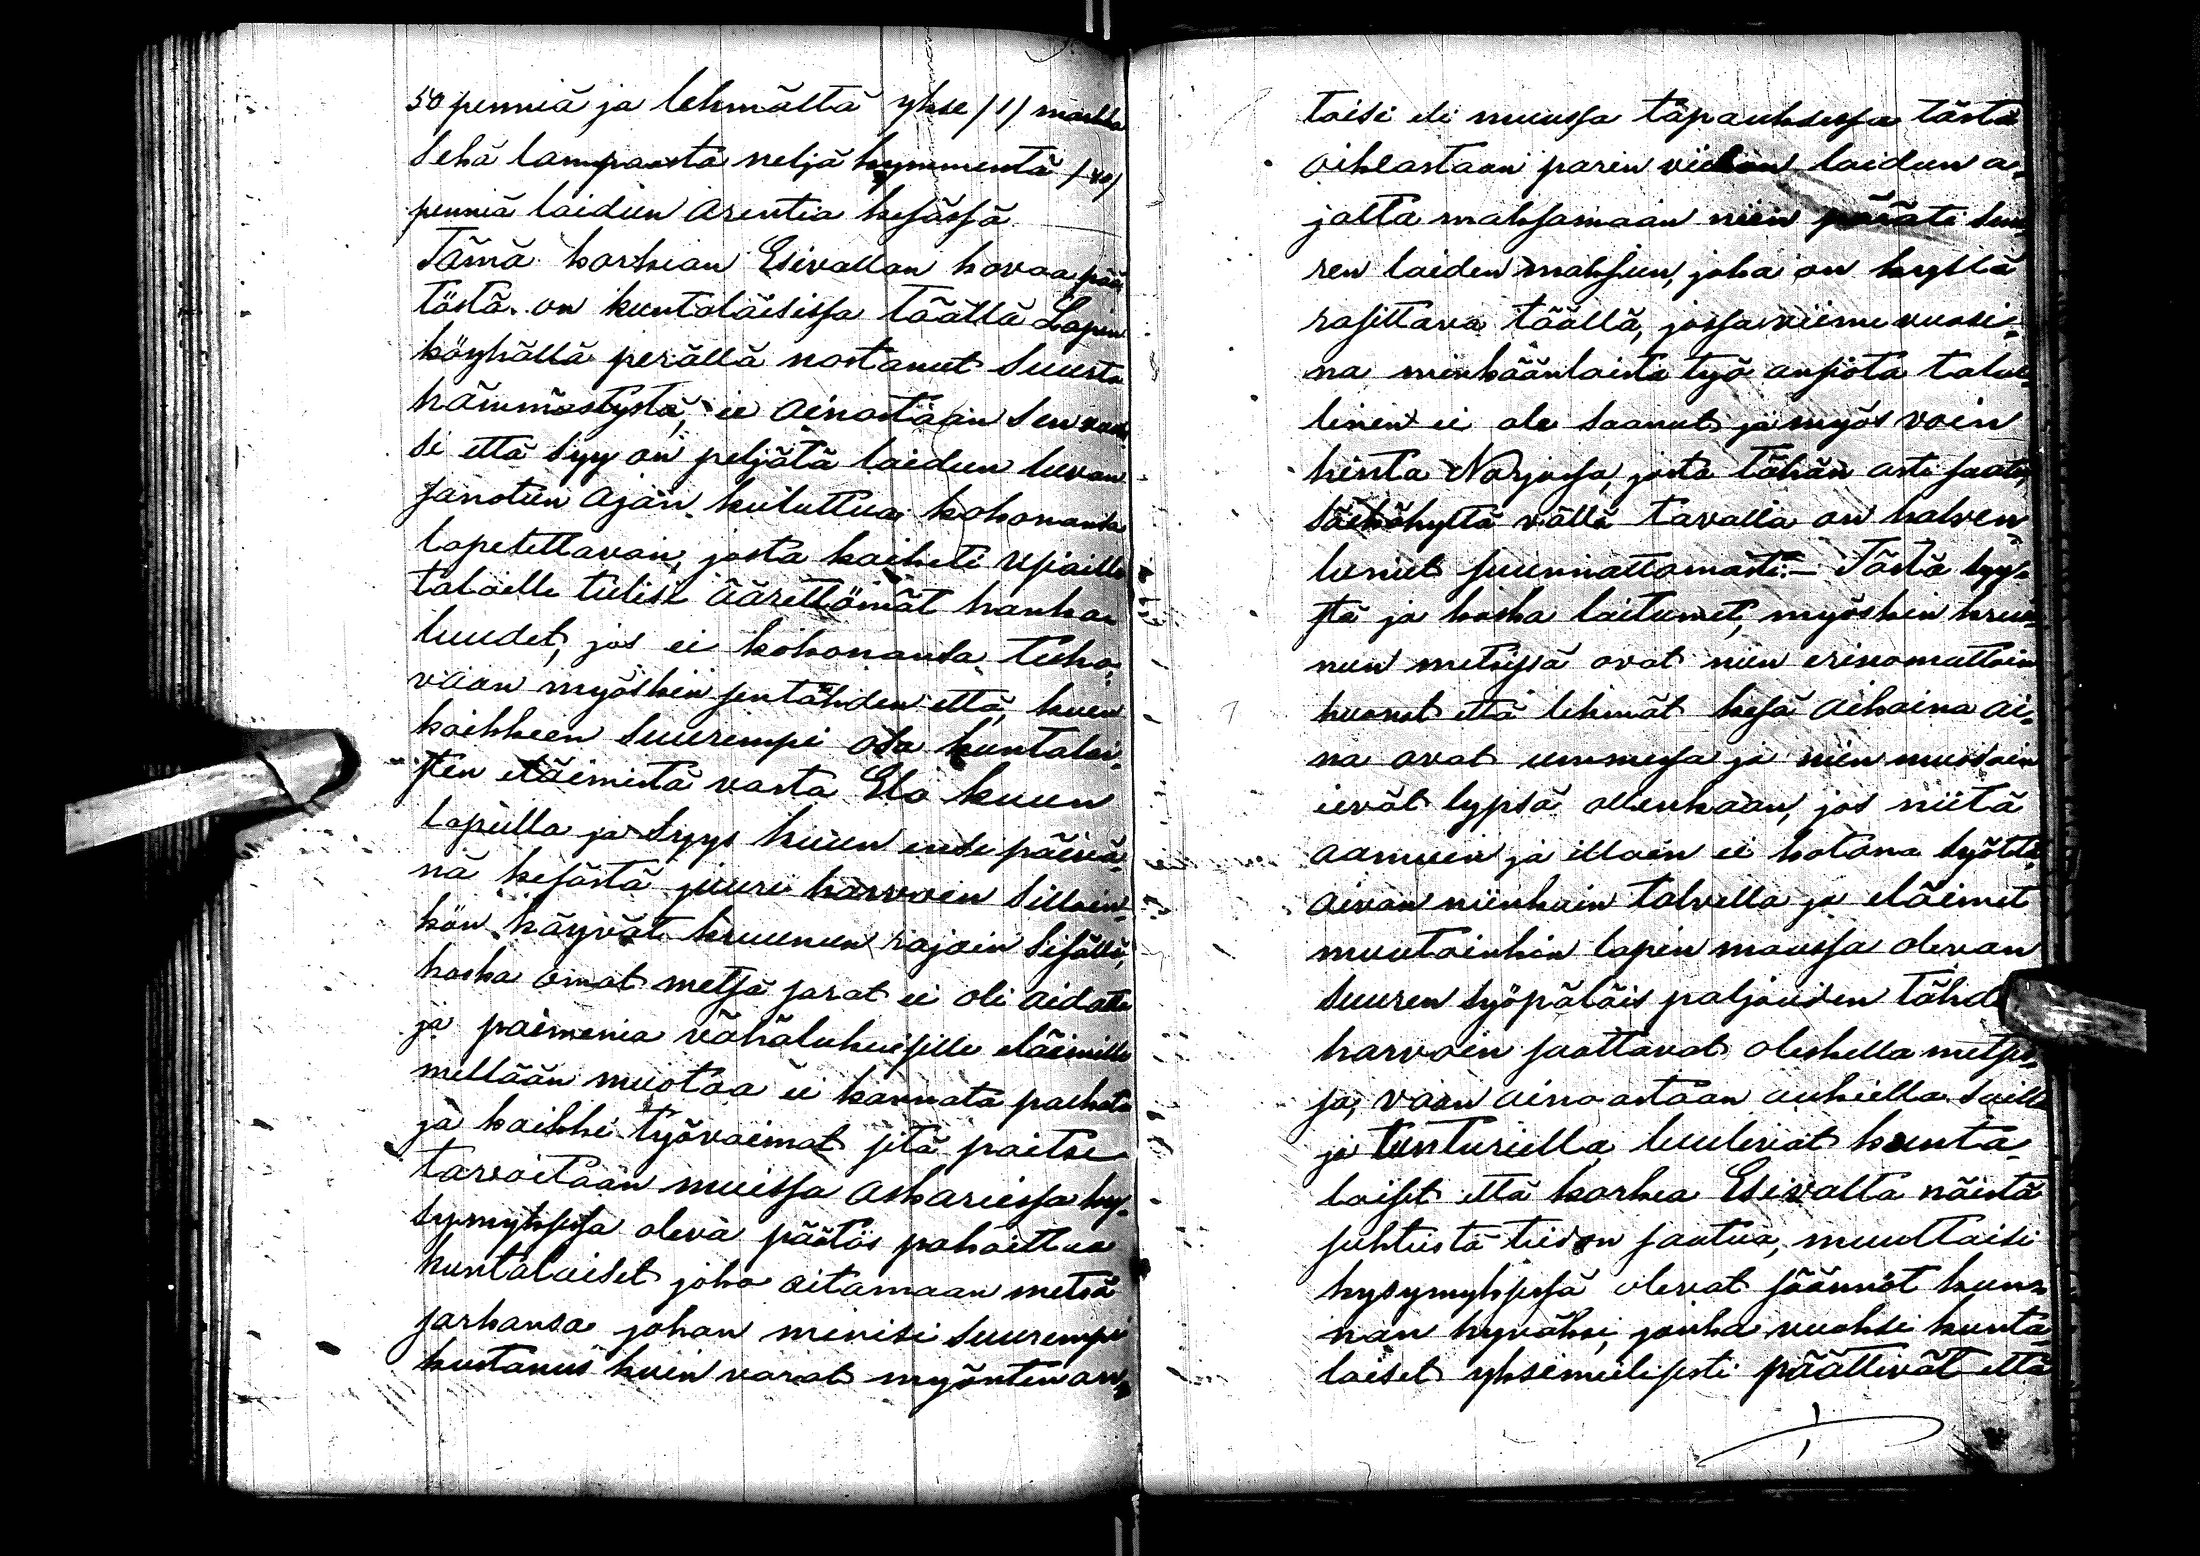 50 penniä ja lehmältä ykse /1/ markka
Sekä lampaasta neljä kymmentä /40/
penniä laidun arentia kesässä
Tämä korkian Esivallan kovaa pää
töstä on kuntaläisissa täällä Lapin
köyhällä perällä nostanut Suurta
hämmästystä, ei ainostaan Sen vuok
si että Syy on peljätä laidun luvan
sanotun ajan kuluttua kokonansa
lopetettavan, josta kaiketi Usiaille
taloille tulisi äärettömät hanka-
luudet, jos ei kokonansa tuho,
vaan myöskin sentähden että, kuen
kaikkeen Suurempi osa kuntalai-
sten eläimistä vasta Elo kuun
lopulla ja Syys kuun ensi päivä-
nä kesästä juuri harvoen Silloin-
kön käyvät kruunun rajain Sisällä,
koska omat metsä sarat ei oli aidattu
ja paimenia vähälukuisille eläimille
millään muotoa ei kannata palkata
ja kaikki työvoimat sitä paitse
tarvoitaan muissa askarissa ky-
symyksessa oleva päätös pahoittaa
kuntalaiset joko aitamaan metsä
sarkansa johon menisi Suurempi
kustanus kuin varat myönten an-
taisi eli muussa täpauksessa tästä
oikeastaan parin viikon laidun a-
jalta maksamaan niin pääati Suu
ren laiden maksun, joka on kyllä
rasittava täällä, jossa viime vuosi-
na minkäänlaista työ ansiota talol-
linen ei ole Saanut ja myös voin
hinta Norjassa, josta tähän asti saatu
säeköhyttä vällä tavalla on halven-
tunut suunnattomasti.- Tästä syy-
stä ja koska laitumet, myöskin kruu-
nun metsissä ovat niin erinomattoin
huonot että lehmät kesä aikaina ai-
na ovat ummessa ja niin muodoin
ievät lypsä ollenkaan, jos niitä
aamuin ja illoin ei kotona Syötti
aivan niinkuin talvella ja eläimet
muutoinkin lapin maassa olevan
Suuren Syöpäläis paljouden tähd
harvoin saattavat oleskella metsi-
sä, vaan ainoastaan aukiella Soilla
ja tunturiella luulevat kunta-
laiset että korkea Esivalta näistä
suhtusta tiedon saatua, muuttaisi
kysymyksessä olevat säännöt kun-
nan hyväksi, jonka vuoksi kunta
laiset yksimielisesti päättivät että